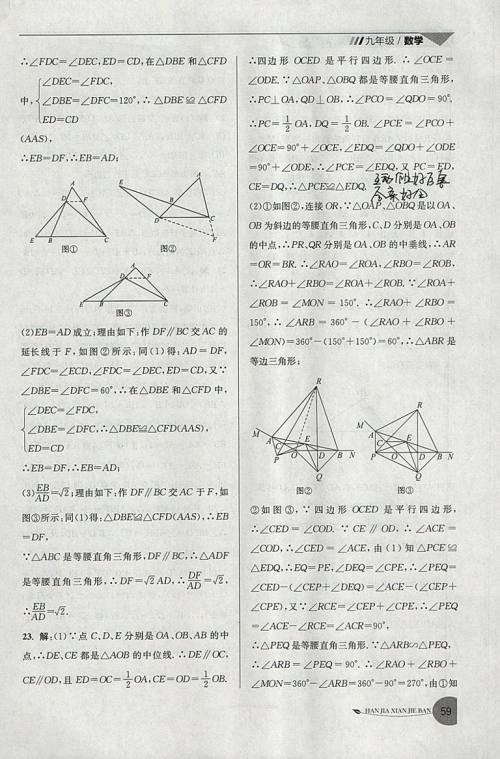 九年级/数学
∴∠FDC=∠DEC,ED=CD,在△DBE和△CFD
中,
∠DEC=∠FDC,
∠DBE=∠DFC=120°,∴△DBE≌△CFD
ED=CD
(AAS),
∴EB=DF,∴EB=AD;
A
D
F
E
B
C
图①
E
A
B
D
C
F
图②
A
D
F
E
B
C
图③
(2)EB=AD成立;理由如下:作DF∥BC交AC的
延长线于F,如图②所示:同(1)得:AD=DF,
∠FDC=∠ECD,∠FDC=∠DEC,ED=CD,又∵
∠DBE=∠DFC=60°,∴在△DBE和△CFD中,
∠DEC=∠FDC,
∠DBE=∠DFC,∴△DBE≌△CFD(AAS),
ED=CD
∴EB=DF,∴EB=AD;
(3)EB/AD=√2;理由如下:作DF∥BC交AC于F,如
图③所示:同(1)得:△DBE≌△CFD(AAS),∴EB
=DF,
∵△ABC是等腰直角三角形,DF∥BC,∴△ADF
是等腰直角三角形,∴DF=√2AD,∴DF/AD=√2,
∴EB/AD=√2.
23. 解:(1)∵点C、D、E分别是OA、OB、AB的中
点,∴DE、CE都是△AOB的中位线.∴DE∥OC,
CE∥OD,且ED=OC=1/2OA,CE=OD=1/2OB.
∴四边形OCED是平行四边形.∴∠OCE=
∠ODE.∵△OAP、△OBQ都是等腰直角三角形,
∴PC⊥OA,QD⊥OB,∴∠PCO=∠QDO=90°.
∴PC=1/2OA,DQ=1/2OB.∠PCE=∠PCO+
∠OCE=90°+∠OCE,∠EDQ=∠QDO+∠ODE
=90°+∠ODE,∴∠PCE=∠EDQ,又PC=ED,
CE=DQ,∴△PCE≌△EDQ.
(2)①如图②,连接OR,∵△OAP、△OBQ是以OA、
OB为斜边的等腰直角三角形,C、D分别是OA、OB
的中点,∴PR、QR分别是OA、OB的中垂线,∴AR
=OR=BR.∴∠RAO=∠ROA,∠RBO=∠ROB,
∴∠RAO+∠RBO=∠ROA+∠ROB.∵∠ROA+
∠ROB=∠MON=150°,∴∠RAO+∠RBO=
150°,∴∠ARB=360°-(∠RAO+∠RBO+
∠MON)=360°-(150°+150°)=60°,∴△ABR是
等边三角形;
R
M
A
C
E
P
O
D
B
N
Q
图②
R
M
A
C
E
P
O
D
B
N
Q
图③
②如图③,∵四边形OCED是平行四边形,
∴∠CED=∠COD.∵CE∥OD,∴∠ACE=
∠COD,∴∠CED=∠ACE,由(1)知△PCE≌
△EDQ,∴EQ=PE,∠DEQ=∠CPE,∴∠PEQ=
∠CED-(∠CEP+∠DEQ)=∠ACE-(∠CEP+
∠CPE),又∵∠RCE=∠CEP+∠CPE,∴∠PEQ
=∠ACE-∠RCE=∠ACR=90°,
∴△PEQ是等腰直角三角形.∵△ARB∽△PEQ,
∴∠ARB=∠PEQ=90°,∴∠RAO+∠RBO+
∠MON=360°-∠ARB=360°-90°=270°,由①知
HAN JIA XIAN JIE BAN
59